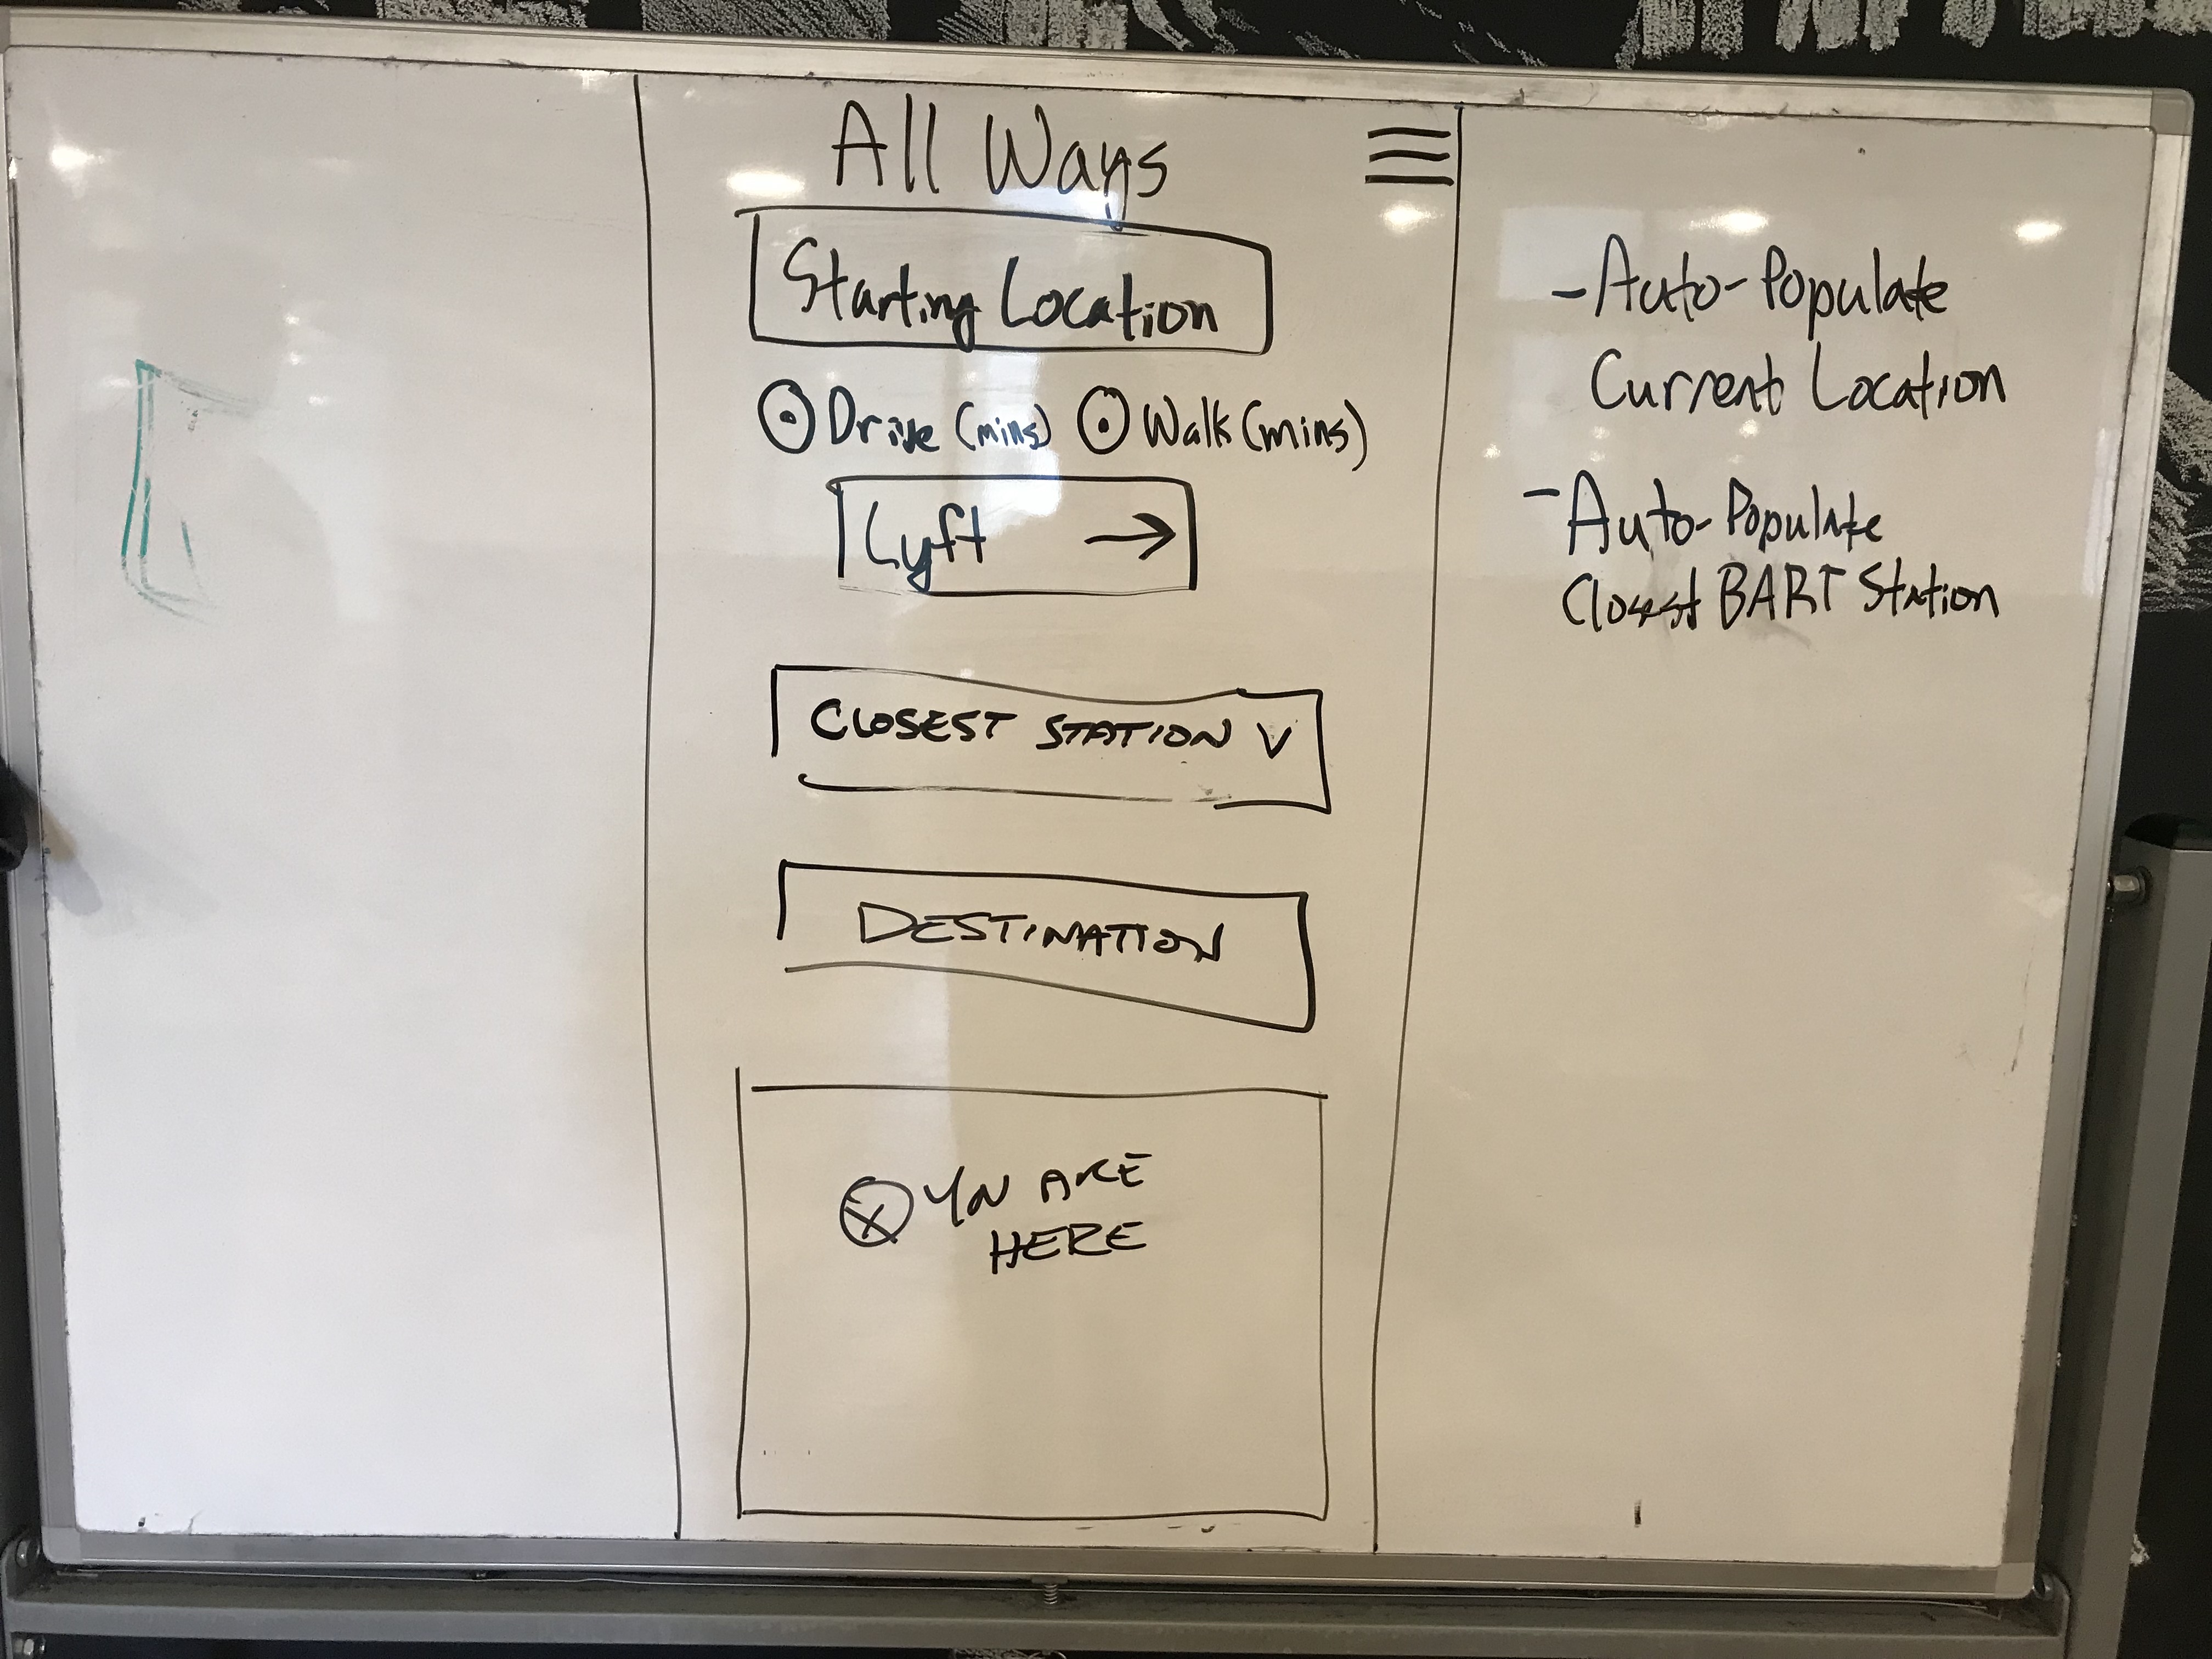 All Ways
Starting Location
Drive (mins) Walk (mins)
Lyft →
CLOSEST STATION V
DESTINATION
YOU ARE
HERE
- Auto-Populate
Current Location
- Auto-Populate
Closest BART Station